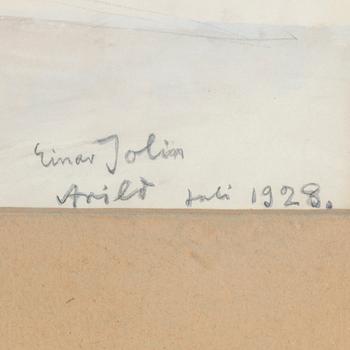 Einar Jolin
Arild Juli 1928.